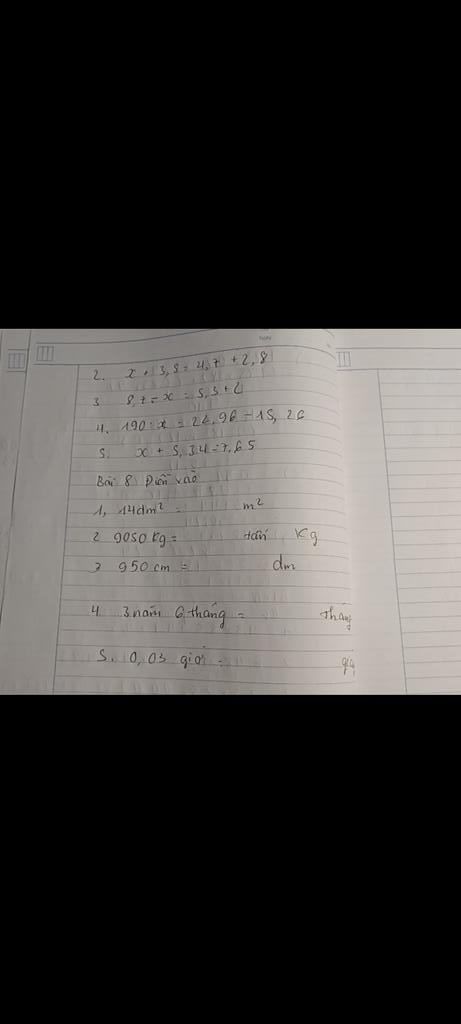 Ngày
2. x + 3,8 = 4,7 + 2,8
3 8,7 - x = 5,3 + 2
4. 190 : x = 24,96 - 15,26
5. x + 5,34 = 7,65
Bài 8 Điền vào
1, 14dm² = m²
2 9050 kg = tấn kg
3 950 cm = dm
4 3 năm 6 tháng = tháng
5. 0,03 giờ =